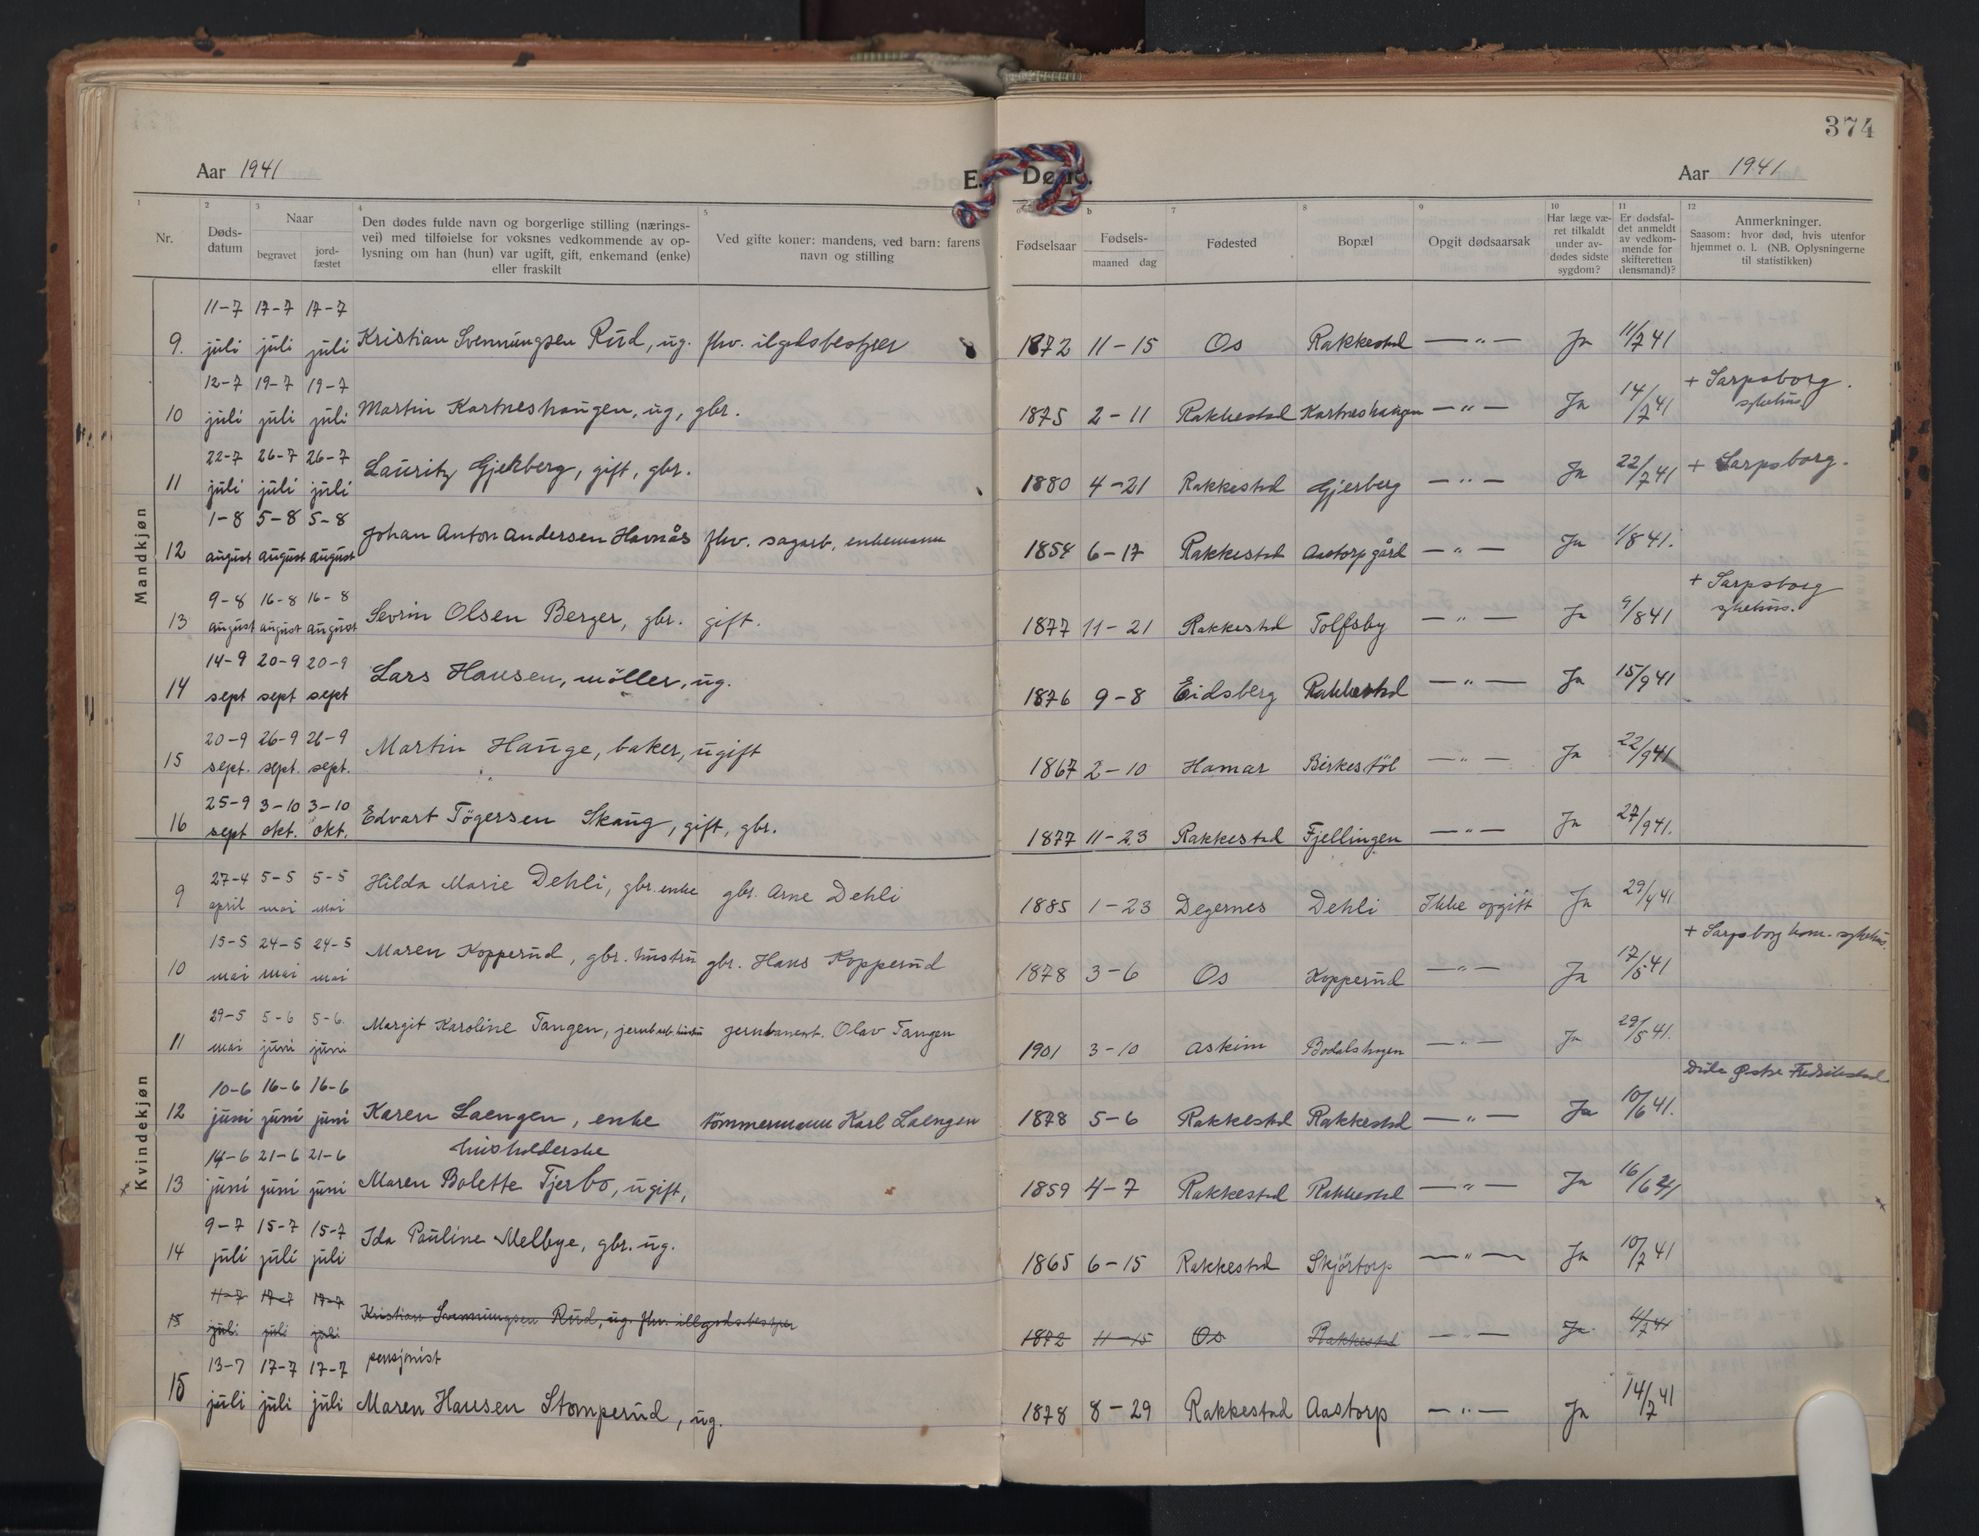 374
Aar 1941
E. Døde.
Aar 1941
1 2 3 4 5 6 b 7 8 9 10 11 12
Nr.
Døds-
datum
Naar
begravet
jord-
fæstet
Den dødes fulde navn og borgerlige stilling (nærings-
vei) med tilføielse for voksnes vedkommende av op-
lysning om han (hun) var ugift, gift, enkemand (enke)
eller fraskilt
Ved gifte koner: mandens, ved barn: farens
navn og stilling
Fødselsaar
Fødsels-
maaned dag
Fødested
Bopæl
Opgit dødsaarsak
Har læge væ-
ret tilkaldt
under av-
dødes sidste
sygdom?
Er dødsfal-
det anmeldt
av vedkom-
mende for
skifteretten
(lensmand)?
Anmerkninger.
Saasom: hvor død, hvis utenfor
hjemmet o. l. (NB. Oplysningerne
til statistikken)
Mandkjøn
11-7 17-7 17-7
9. juli juli juli Kristian Svennungsen Rud, ug. fhv. ilgodsbestyrer 1872 11-15 Os Rakkestad —"— Ja 11/7 41
12-7 19-7 19-7 + Sarpsborg.
10 juli juli juli Martin Kartneshaugen, ug, gbr. 1875 2-11 Rakkestad Kartneshaugen —"— Ja 14/7 41 sykehus.
22-7 26-7 26-7
11 juli juli juli Lauritz Gjerberg, gift, gbr. 1880 4-21 Rakkestad Gjerberg —"— Ja 22/7 41 + Sarpsborg.
1-8 5-8 5-8
12 august august august Johan Anton Andersen Havnås fhv. sagarb, enkemann 1854 6-17 Rakkestad Aastorp gård —"— Ja 1/8 41.
9-8 16-8 16-8 + Sarpsborg
13 august august august Sevrin Olsen Berger, gbr. gift. 1877 11-21 Rakkestad Tolfsby —"— Ja 9/8 41 sykehus.
14-9 20-9 20-9
14 sept sept sept Lars Hansen, møller, ug. 1876 9-8 Eidsberg Rakkestad —"— Ja 15/9 41
20-9 26-9 26-9
15 sept. sept. sept. Martin Hauge, baker, ugift 1867 2-10 Hamar —"— Ja 22/9 41
25-9 3-10 3-10
16 sept okt. okt. Edvart Tøgersen Skaug, gift, gbr. 1877 11-23 Rakkestad Fjellingen —"— Ja 27/9 41.
Kvindekjøn
27-4 5-5 5-5
9 april mai mai Hilda Marie Dehli, gbr. enke gbr. Arne Dehli 1885 1-23 Degernes Dehli Ikke opgitt Ja 29/4 41
15-5 24-5 24-5 + Sarpsborg kom. sykehus.
10 mai mai mai Maren Kopperud, gbr. hustru gbr. Hans Kopperud 1878 3-6 Os Kopperud —"— Ja 17/5 41
29-5 5-6 5-6.
11 mai juni juni Margit Karoline Tangen, jernb.arb. hustru Olav Tangen 1901 3-10 Askim Bodalshagen —"— Ja 29/5 41.
10-6 16-6 16-6
12 juni juni juni Karen Laengen, enke tømmermann Karl Laengen 1878 5-6 Rakkestad Rakkestad —"— Ja 10/6 41.
14-6 21-6 21-6 husholderske
x 13 juni juni juni Maren Bolette Tjerbo, ugift, 1859 4-7 Rakkestad Rakkestad —"— Ja 16/6 41 x
9-7 15-7 15-7
14 juli juli juli Ida Pauline Melbye, gbr. ug. 1865 6-15 Rakkestad Skjørtorp —"— Ja 10/7 41
11-7 17-7 17-7
15 juli juli juli Kristian Svennungsen Rud, ug. fhv. illgodsbestyrer 1872 11-15 Os Rakkestad —"— Ja 11/7 41
13-7 17-7 17-7 pensjonist
15 juli juli juli Maren Hansen Stomperud, ug. 1878 8-29 Rakkestad Aastorp —"— Ja 14/7 41